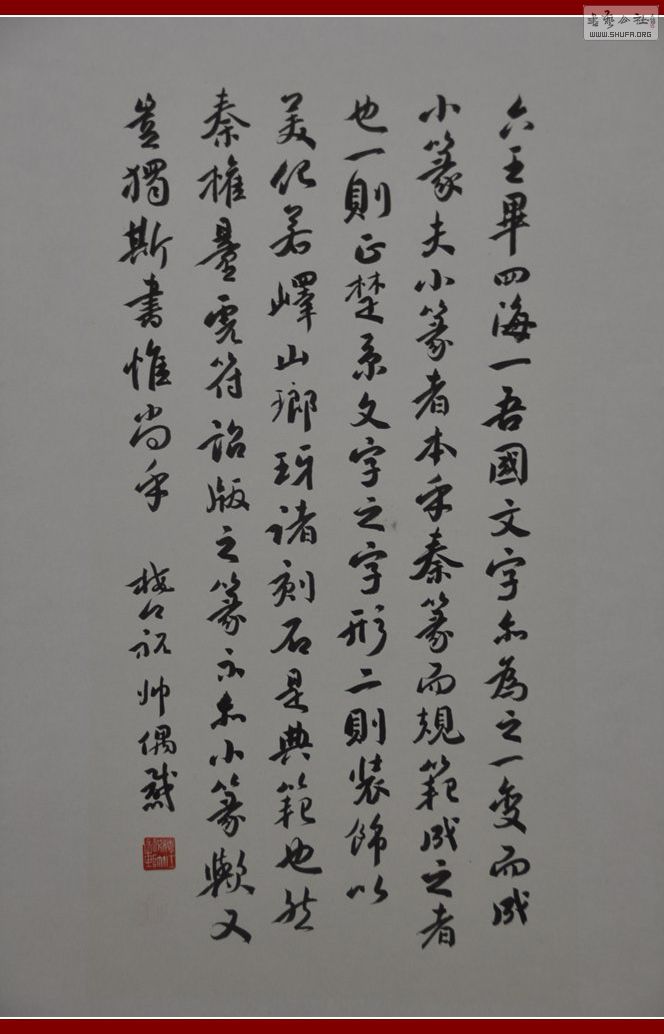 六王畢四海一吾國文字亦為之一變而成
小篆夫小篆者本乎秦篆而規範成之者
也一則正楚系文字之字形二則裝飾以
美化若嶧山瑯玡諸刻石是典範也然
秦權量虎符詔版之篆亦小篆歟又
豈獨斯書惟尚乎
祝帥偶識
書藝公社
WWW.SHUFA.ORG